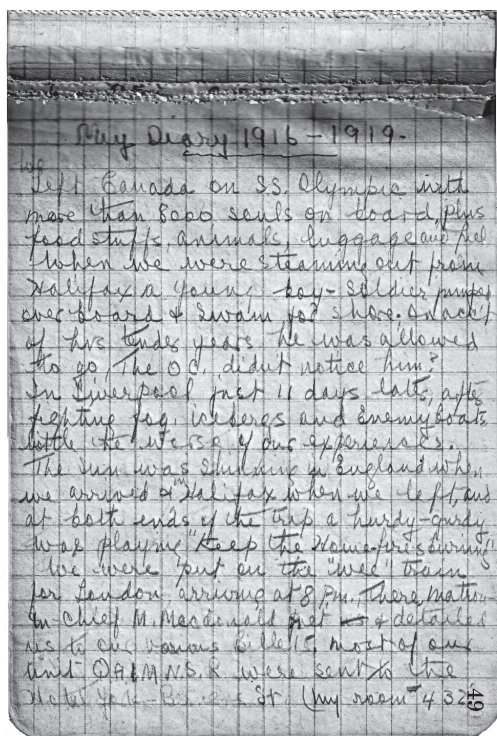 My Diary 1916-1919.
We
Left Canada on S.S. Olympic with
more than 8000 souls on board, plus
foodstuffs, animals, luggage and
When we were steaming out from
Halifax a young boy-soldier jumped
over board & swam for shore. On acct
of his tender years he was allowed
to go, The O.C. didn't notice him?
In Liverpool just 11 days later, after
fighting fog icebergs and Enemy boats
little the worse of our experiences.
The sun was shining in England when
we arrived & in Halifax when we left, and
at both ends of the trip a hurdy-gurdy
was playing "Keep the Home-fires burning"
We were put on the "wee" train
for London arriving at 8 P.M. There, Matron-
in-chief M. Macdonald met & detailed
us to our various Billets, most of our
unit Q.A.I.M.N.S.R were sent to the
Hotel York - St. (my room # 432
49